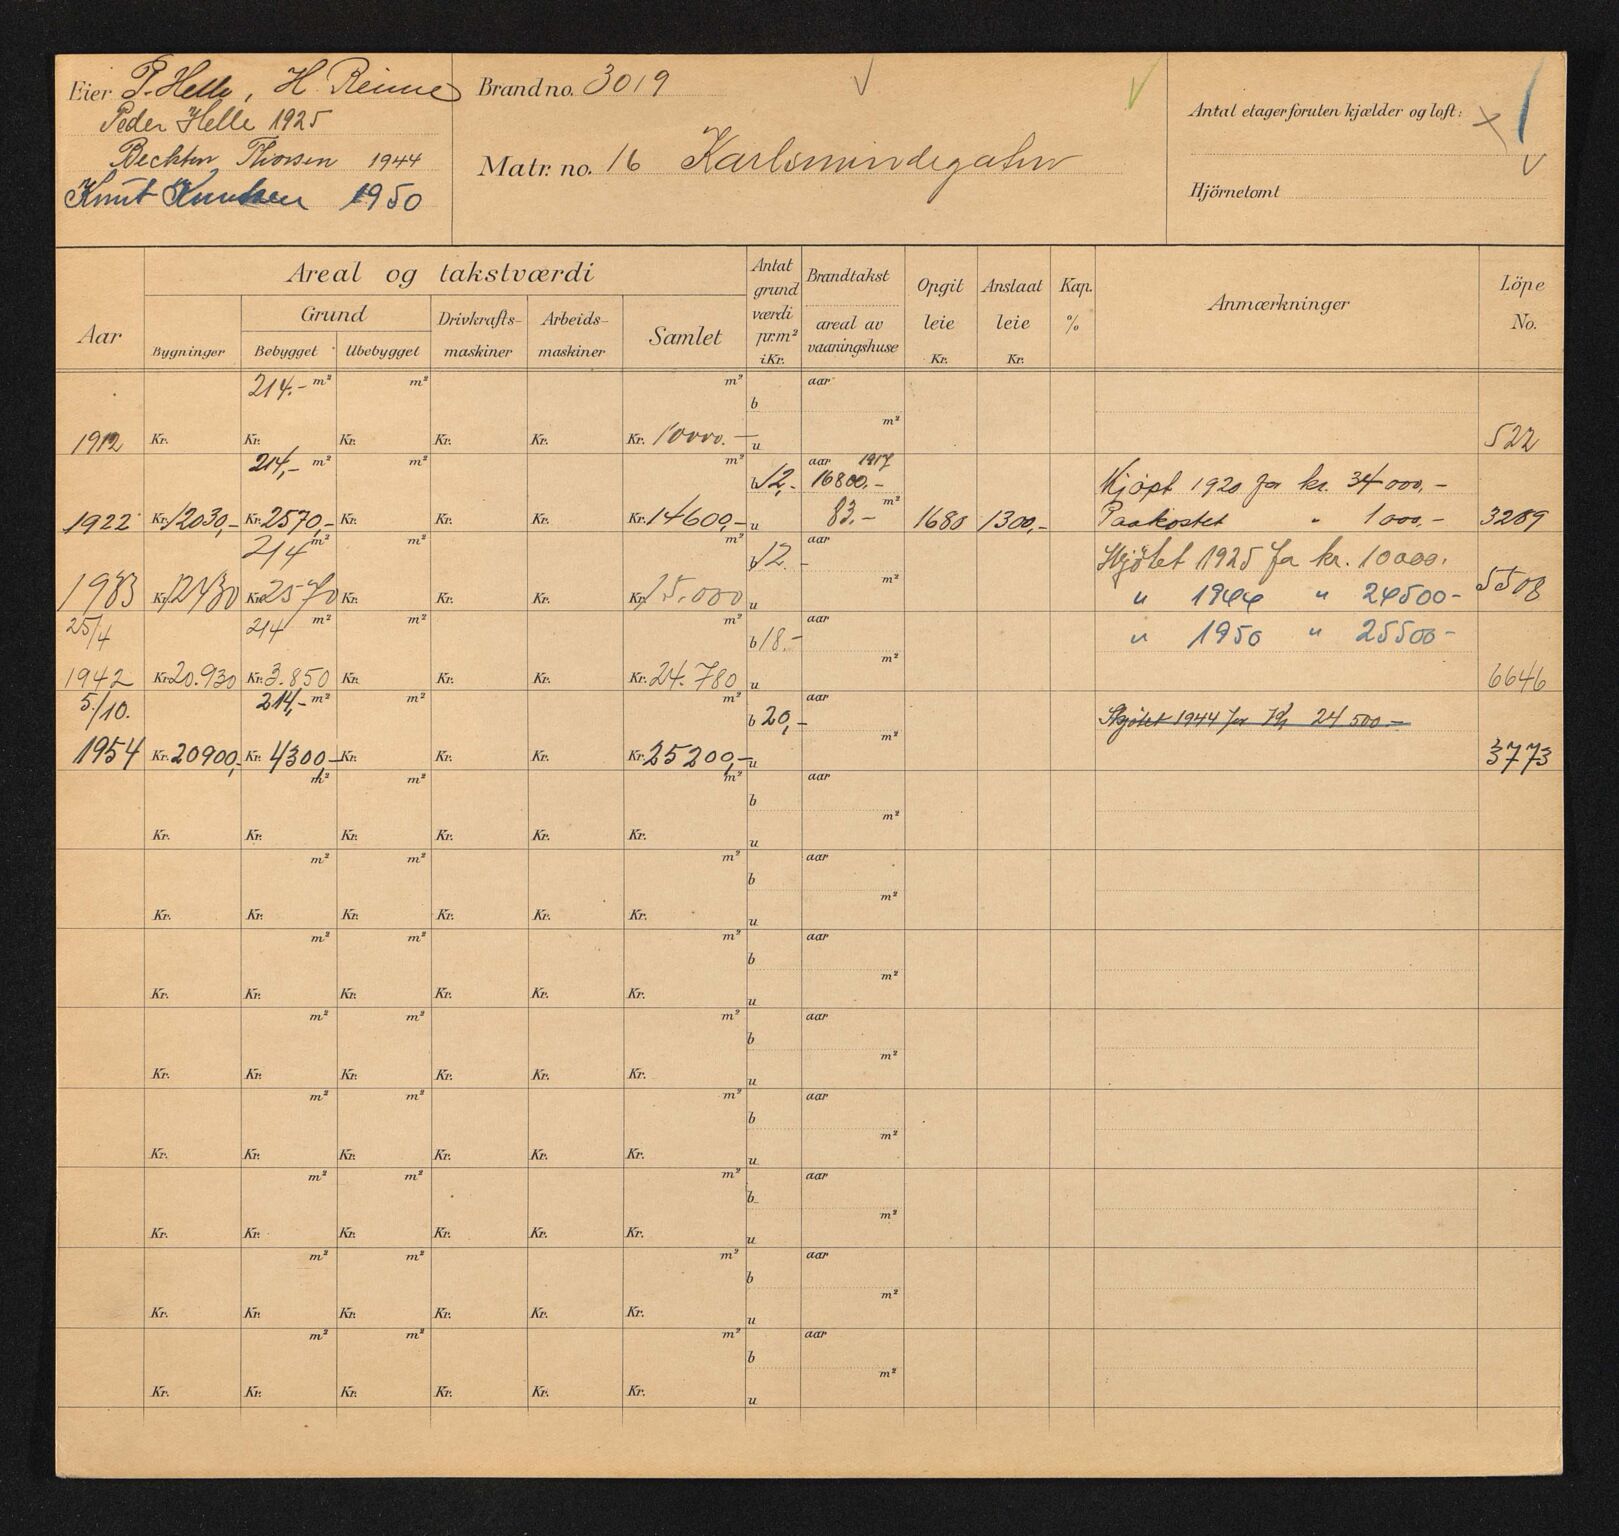 Eier P. Helle, H. Reime
Peder Helle 1925
Thorsen 1944
Knut Knutsen 1950
Brand no. 3019
Matr. no. 16 Karlsmindegaten
Antal etager foruten kjælder og loft:
Hjörnetomt
Aar
Areal og takstværdi
Bygninger
Grund
Bebygget Ubebygget
Drivkrafts-
maskiner
Arbeids-
maskiner
Samlet
Antat
grund
værdi
pr. m²
i Kr.
Brandtakst
areal av
vaaningshuse
Opgit
leie
Kr.
Anslaat
leie
Kr.
Kap.
%
Anmærkninger
Löpe
No.
214.- m² m² m² aar
b
m²
1912 Kr. Kr. Kr. Kr. Kr. Kr. 10000.- u 522
214,- m² m² m² aar 1917
b 12,- 16800.- Kjöpt 1920 for kr. 34000,-
m²
1922 Kr. 12030,- Kr. 2570,- Kr. Kr. Kr. Kr. 14600,- u 83.- 1680 1300,- Paakostet " 1000,- 3289
214 m² m² m² aar
b 12.- Skjötet 1925 for kr. 10000.
m²
1933 Kr. 12430 Kr. 2570 Kr. Kr. Kr. Kr. 15.000 u " 1944 " 24500- 5508
25/4 214 m² m² m² aar
b 18.- " 1950 " 25500-
m²
1942 Kr. 20.930 Kr. 3.850 Kr. Kr. Kr. Kr. 24.780 u 6646
5/10. 214,- m² m² m² aar
b 20,- Skjötet 1944 for Kr. 24500.-
m²
1954 Kr. 20900,- Kr. 4300,- Kr. Kr. Kr. Kr. 25200,- u 3773
m² m² m² aar
b
m²
Kr. Kr. Kr. Kr. Kr. Kr. u
m² m² m² aar
b
m²
Kr. Kr. Kr. Kr. Kr. Kr. u
m² m² m² aar
b
m²
Kr. Kr. Kr. Kr. Kr. Kr. u
m² m² m² aar
b
m²
Kr. Kr. Kr. Kr. Kr. Kr. u
m² m² m² aar
b
m²
Kr. Kr. Kr. Kr. Kr. Kr. u
m² m² m² aar
b
m²
Kr. Kr. Kr. Kr. Kr. Kr. u
m² m² m² aar
b
m²
Kr. Kr. Kr. Kr. Kr. Kr. u
m² m² m² aar
b
m²
Kr. Kr. Kr. Kr. Kr. Kr. u